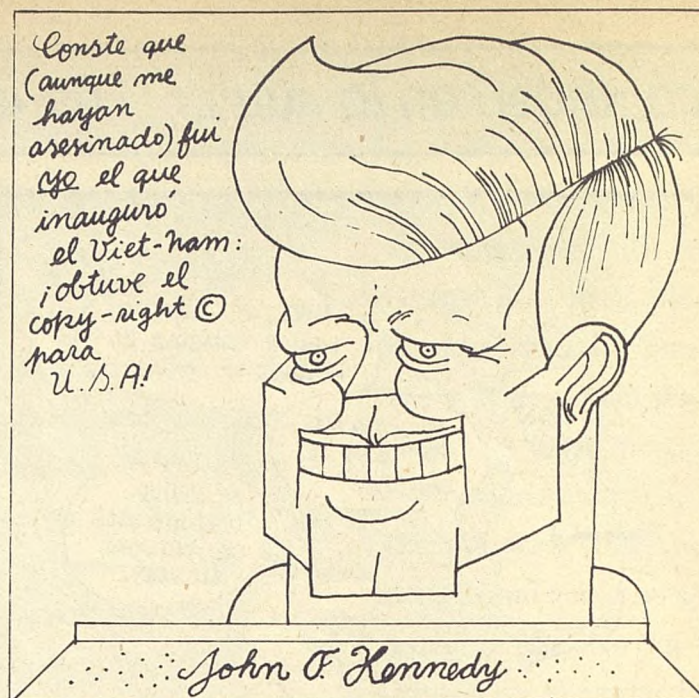 Conste que
(aunque me
hayan
asesinado) fui
yo el que
inauguró
el Viet-nam:
¡obtuve el
copy-right ©
para
U.S.A!
John F. Kennedy